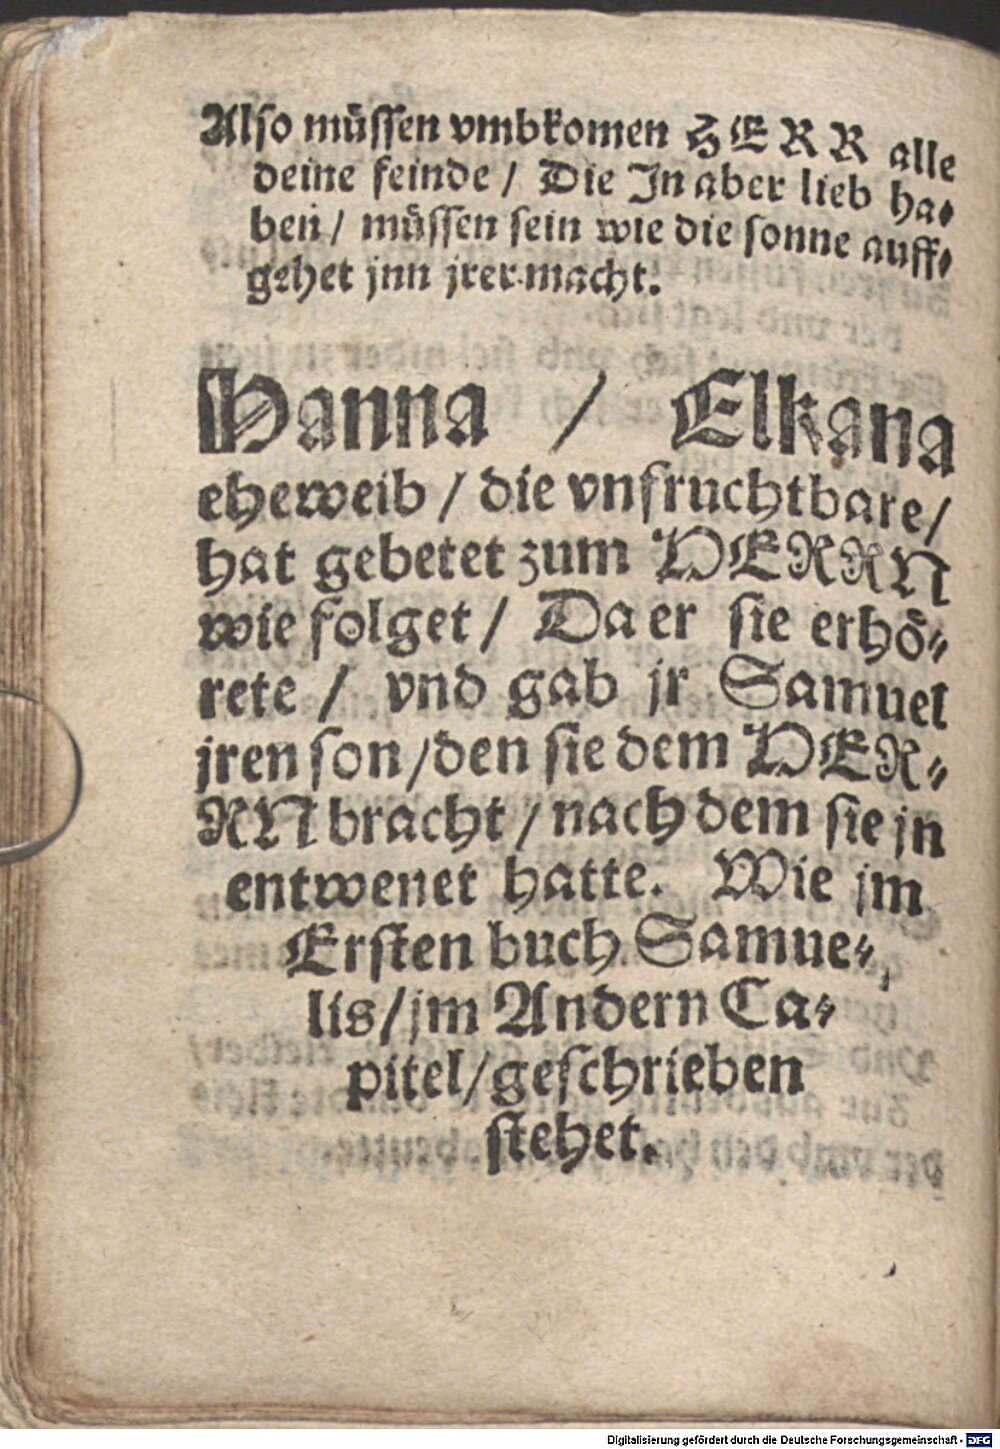 Also müssen vmbkomen HERR alle
deine feinde / Die Jn aber lieb ha⸗
ben / müssen sein wie die sonne auff⸗
gehet jnn jrer macht.
Hanna / Elkana
eheweib / die vnfruchtbare /
hat gebetet zum HERRN
wie folget / Da er sie erhö⸗
rete / vnd gab jr Samuel
jren son / den sie dem HER⸗
RN bracht / nach dem sie jn
entwenet hatte. Wie jm
Ersten buch Samue⸗
lis / jm Andern Ca⸗
pitel / geschrieben
stehet.
Digitalisierung gefördert durch die Deutsche Forschungsgemeinschaft - DFG